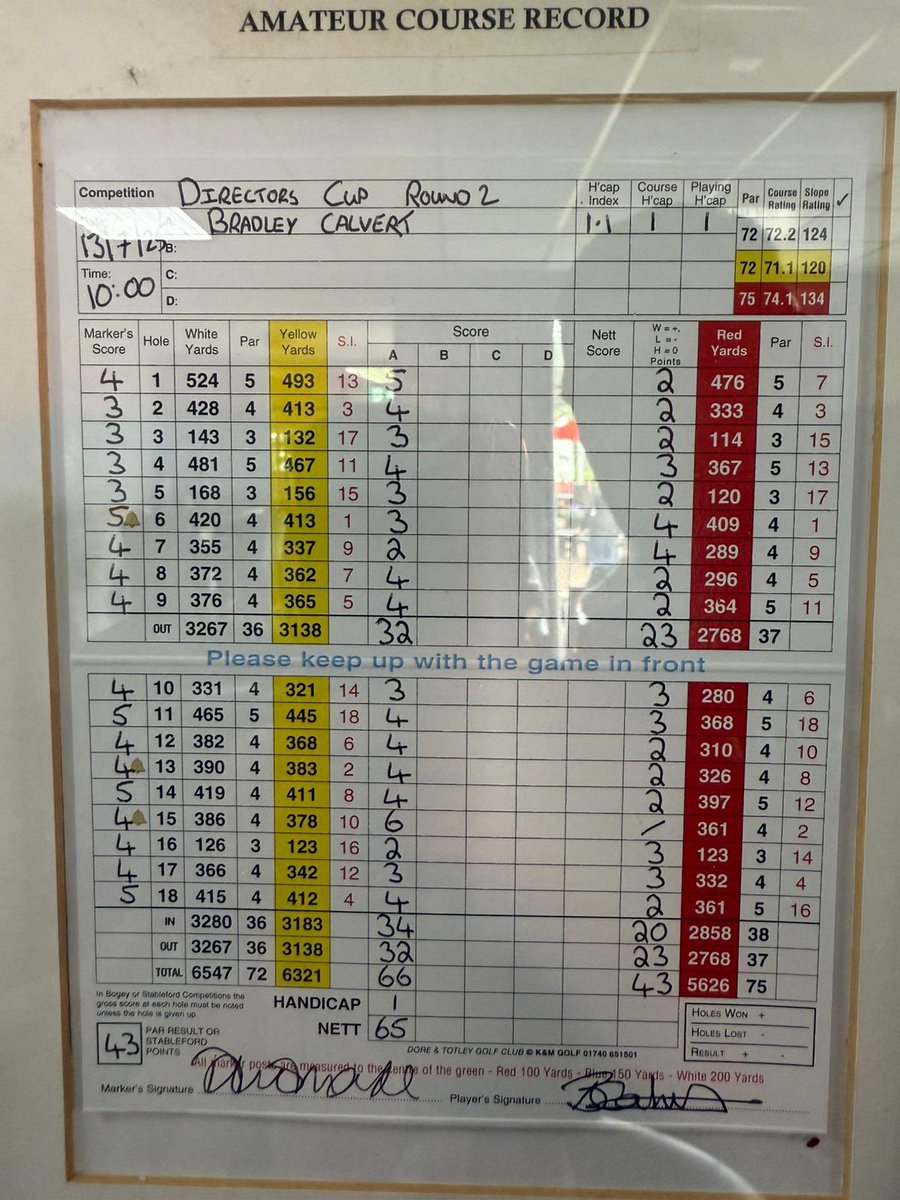 AMATEUR COURSE RECORD
Competition DIRECTORS CUP ROUND 2 H'cap Index Course H'cap Playing H'cap Par Course Rating Slope Rating ✓
BRADLEY CALVERT 1.1 1 1 72 72.2 124
B: 72 71.1 120
Time: 10:00 C:
D: 75 74.1 134
Marker's Score Hole White Yards Par Yellow Yards S.I. Score Nett Score W = +, L = - H = 0 Points Red Yards Par S.I.
A B C D
4 1 524 5 493 13 5 2 476 5 7
3 2 428 4 413 3 4 2 333 4 3
3 3 143 3 132 17 3 2 114 3 15
3 4 481 5 467 11 4 3 367 5 13
3 5 168 3 156 15 3 2 120 3 17
5 6 420 4 413 1 3 4 409 4 1
4 7 355 4 337 9 2 4 289 4 9
4 8 372 4 362 7 4 2 296 4 5
4 9 376 4 365 5 4 2 364 5 11
OUT 3267 36 3138 32 23 2768 37
Please keep up with the game in front
4 10 331 4 321 14 3 3 280 4 6
5 11 465 5 445 18 4 3 368 5 18
4 12 382 4 368 6 4 2 310 4 10
4 13 390 4 383 2 4 2 326 4 8
5 14 419 4 411 8 4 2 397 5 12
4 15 386 4 378 10 6 \ 361 4 2
4 16 126 3 123 16 2 3 123 3 14
4 17 366 4 342 12 3 3 332 4 4
5 18 415 4 412 4 4 2 361 5 16
IN 3280 36 3183 34 20 2858 38
OUT 3267 36 3138 32 23 2768 37
TOTAL 6547 72 6321 66 43 5626 75
In Bogey or Stableford Competitions the gross score at each hole must be noted unless the hole is given up
HANDICAP 1
NETT 65
43 PAR RESULT OR STABLEFORD POINTS
HOLES WON +
HOLES LOST -
RESULT + -
DORE & TOTLEY GOLF CLUB © K&M GOLF 01740 651501
All marker posts are measured to the centre of the green - Red 100 Yards - Blue 150 Yards - White 200 Yards
Marker's Signature
Player's Signature